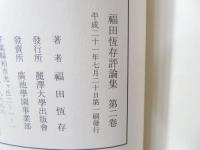 福田恆存評論集　第二卷
平成二十一年七月三十日第一刷發行
著者　福田恆存
發行所　麗澤大學出版會
發賣所　廣池學園事業部